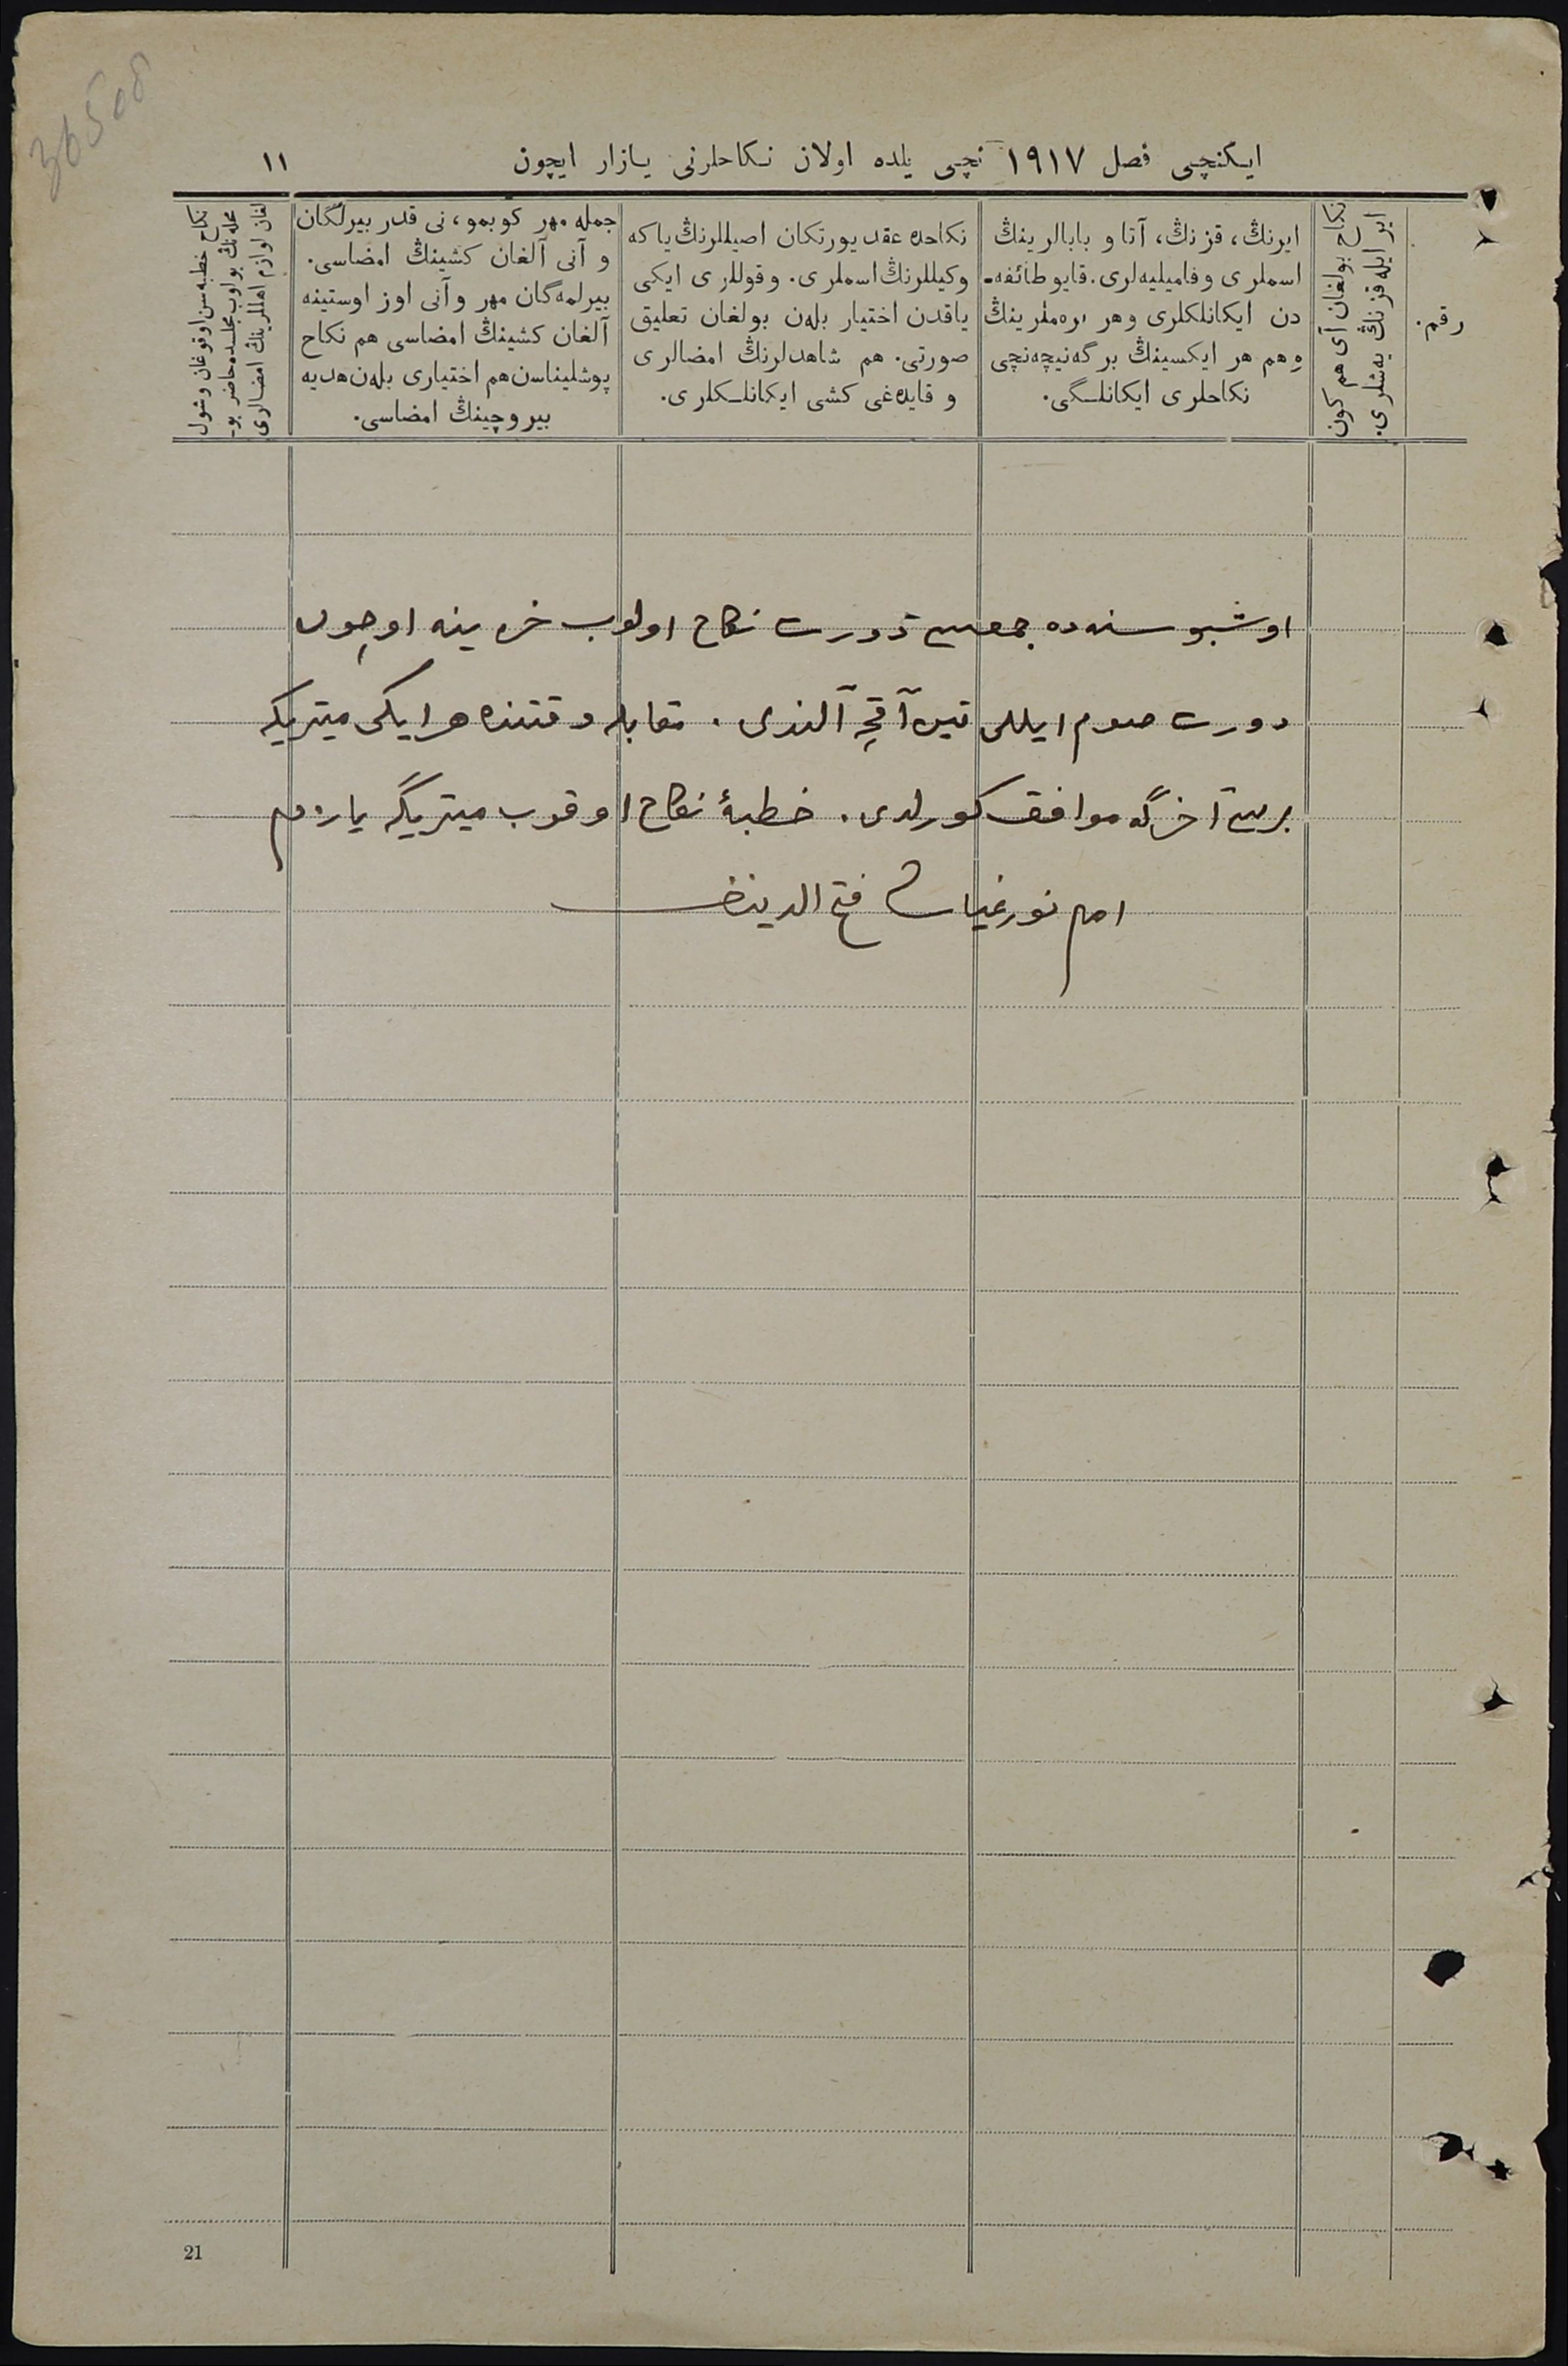 36508
ایکنچی فصل ١٩١٧ نچی یلده اولان نکاحلرنی یازار ایچون
١١
رقم.
ایر ایله قز نڭ یه‌شلری.
نکاح بولغان آی هم کون
ایرنڭ، قز نڭ، آتا و بابالر ینڭ
اسملری و فامیلیه‌لری. قایو طائفه‌ـ
دن ایکانلکلری و هر
و هم هر ایکسینڭ بر گه‌نیچه‌نچی
نکاحلری ایکانلـگی.
نکاحده عقد یورتکان اصیللرنڭ یا که
وکیللرنڭ اسملری. و قوللری ایکی
یاقدن اختیار بله‌ن بولغان تعلیق
صورتی. هم شاهدلرنڭ امضالری
و قایده‌غی کشی ایکانلـکلری.
جمله مهر کوبمو، نی قدر بیرلگان
و آنی آلغان کشینڭ امضاسی.
بیرلمه‌گان مهر و آنی اوز اوستینه
آلغان کشینڭ امضاسی هم نکاح
پوشلیناسن هم اختیاری بله‌ن هدیه
بیروچینڭ امضاسی.
نکاح خطبه‌سن اوقوغان و شول
محله نڭ بولوب مجلسده حاضر بو۔
لغان اوازم اهللرینڭ امضالری
اوشبو سنه ده جمعسی دورت نکاح اولوب خزینه اوچون
دورت صوم ایللی تین آقچه آلندی. مقابله وقتنده هر ایکی میتریکه
برسی آخرگه موافق کورلدی. خطبۀ نکاح اوقوب میتریگه یازدم
امام نورغیاث فتح الدینف
21